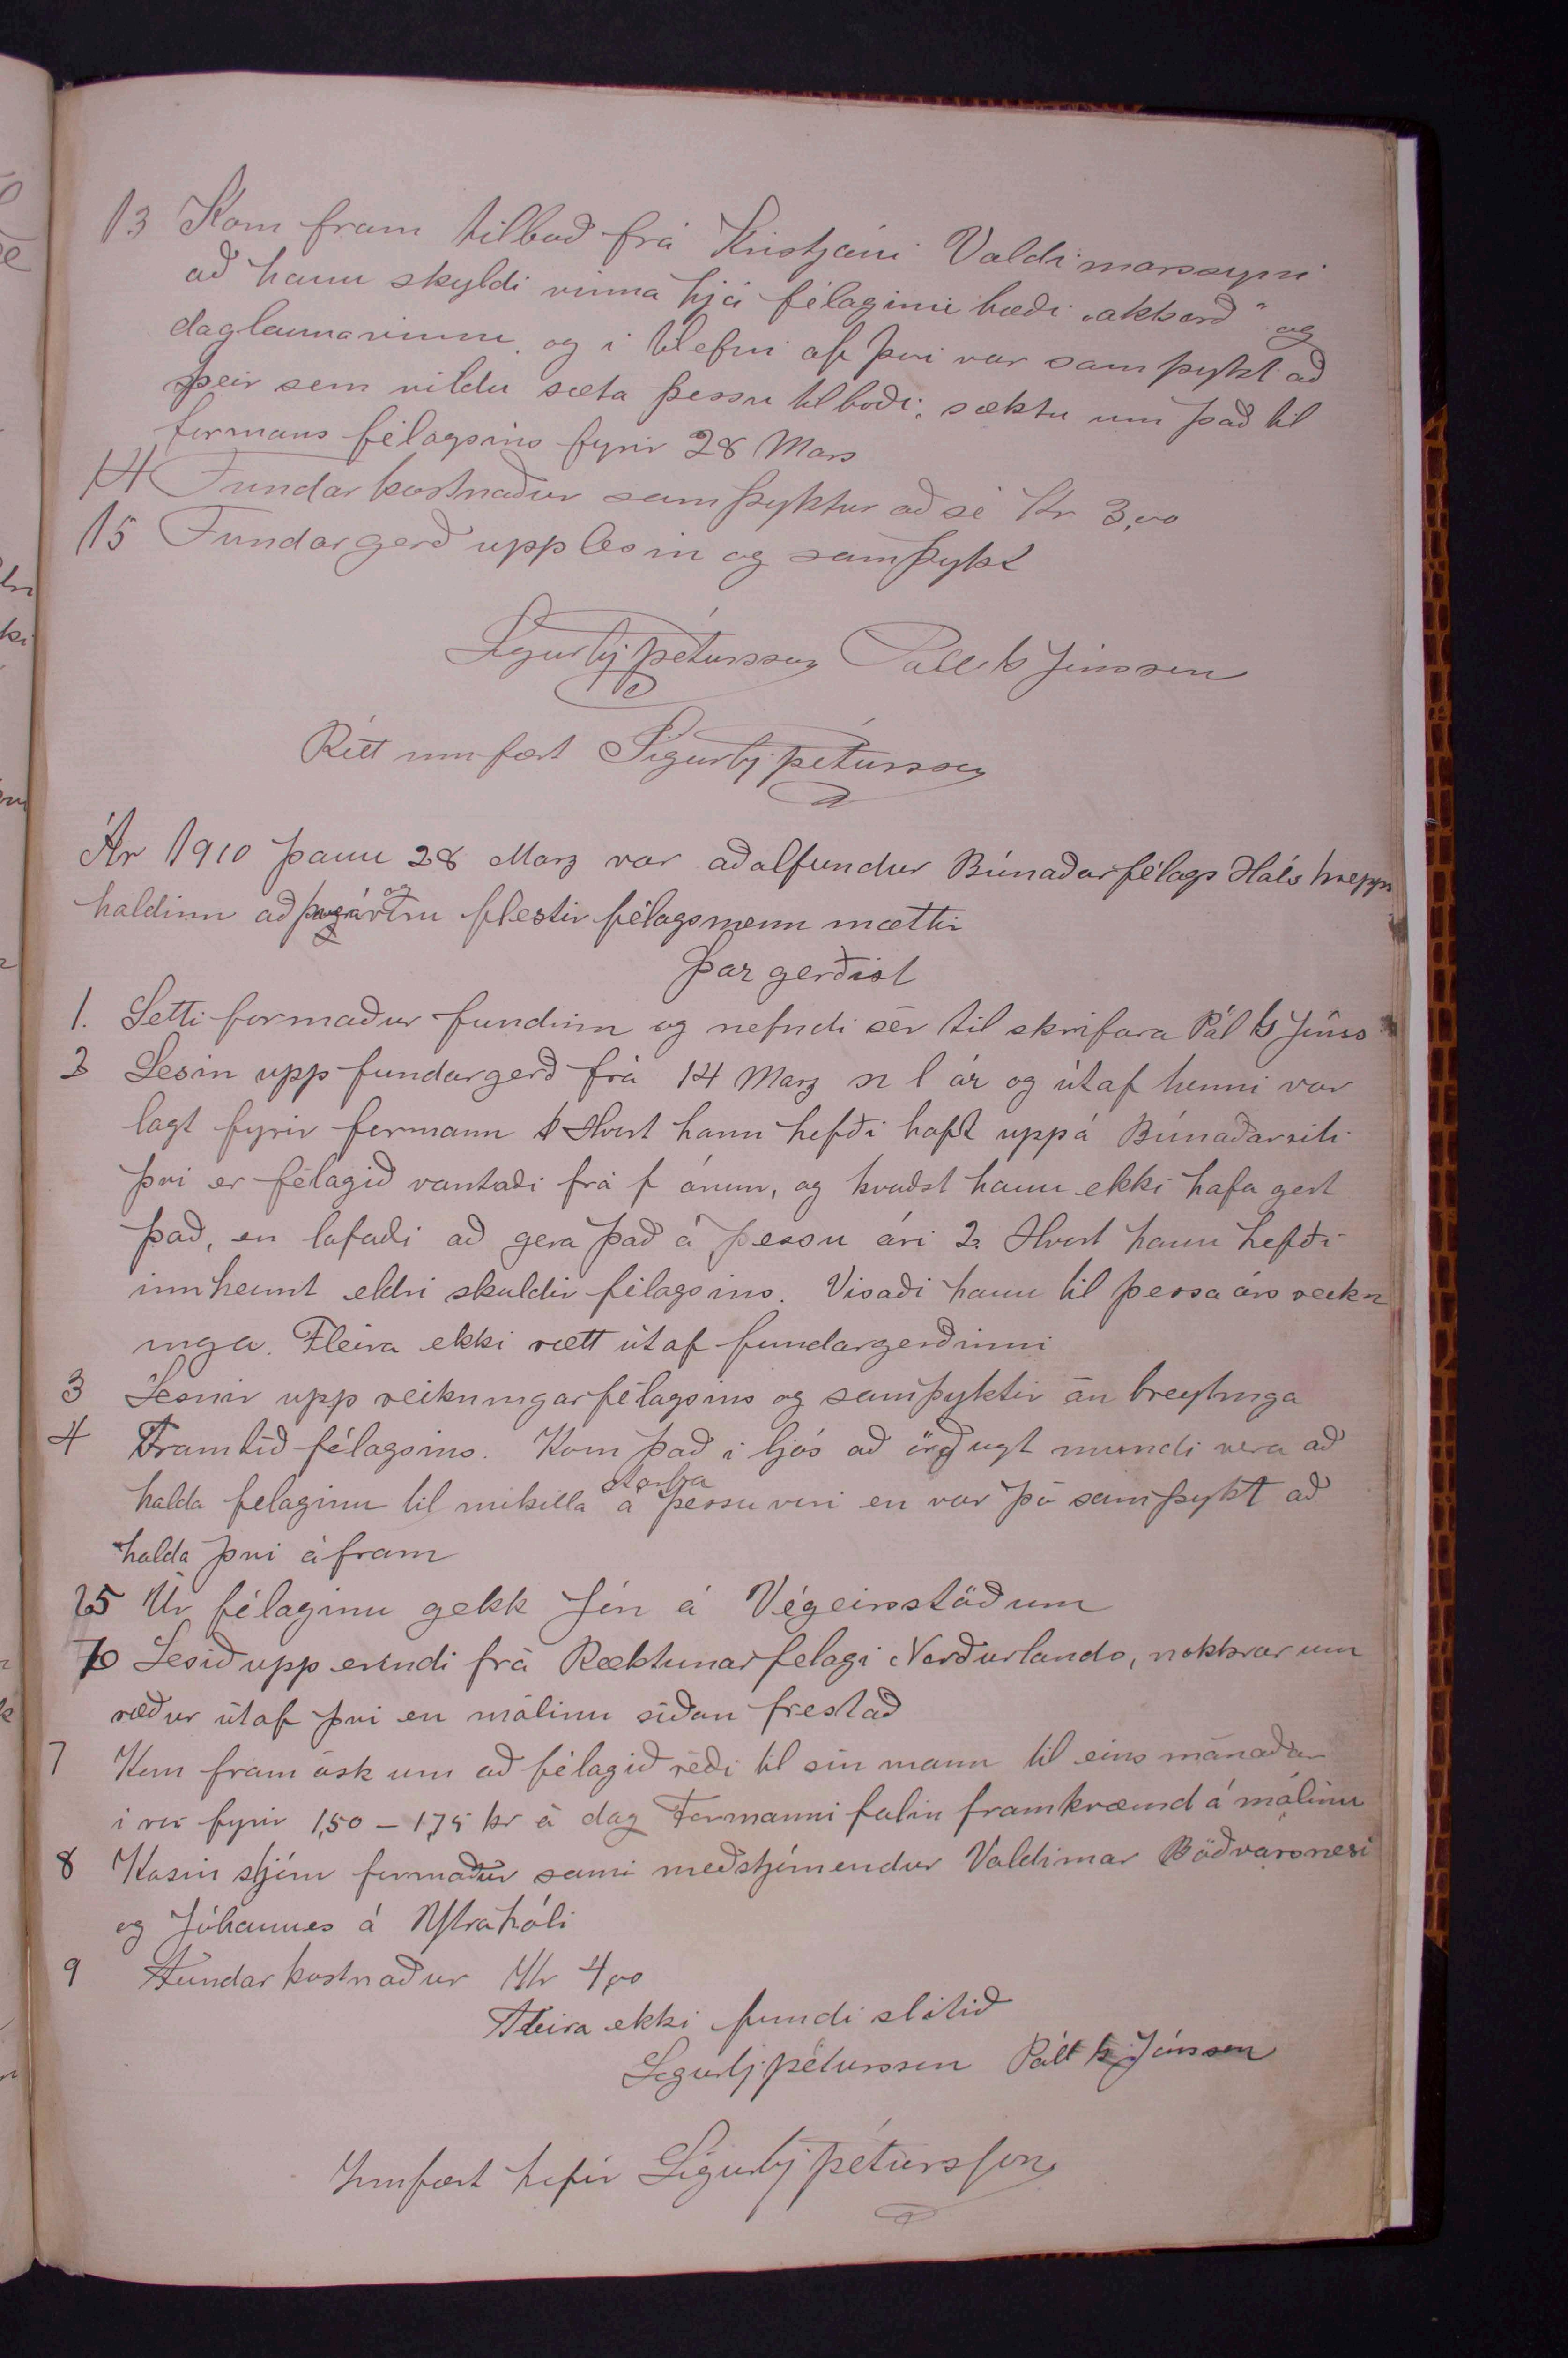 13 Kom fram tilboð frá Kristjáni Valdimarssyni
að hann skyldi vinna hjá félaginu bæði „akkorð“ og
daglaunavinnu, og í tilefni af því var samþykt að
þeir sem vildu sæta þessu tilboði, sæktu um það til
formans félagsins fyrir 28 Mars
14 Fundarkostnaður samþyktur að sé Kr 3,00
15 Fundargerð upplesin og samþykt
Sigurbj Pétursson Páll G Jónsson
Rétt innfært Sigurbj Pétursson
Ár 1910 þann 28 Marz var aðalfundur Búnaðarfélags Háls hrepps
haldinn að og flestir félagsmenn mættir
Þar gerðist
1. Setti formaður fundinn og nefndi sér til skrifara Pál G Jónss
2 Lesin upp fundargerð frá 14 Marz n l ár og útaf henni var
lagt fyrir formann 1 Hvort hann hefði haft uppá Búnaðarriti
því er félagið vantaði frá f árum, og kvaðst hann ekki hafa gert
það, en lofaði að gera það á þessu ári 2. Hvort hann hefði
innheimt eldri skuldir félagsins. Vísaði hann til þessa árs reikn
inga. Fleira ekki rætt útaf fundargerðinni
3 Lesnir upp reikningar félagsins og samþyktir án breytinga
4 Framtíð félagsins. Kom það í ljós að örðugt mundi vera að
halda felaginu til mikilla starfa á þessu vori en var þó samþykt að
halda því áfram
5 Úr félaginu gekk Jón á Végeirsstöðum
6 Lesið upp erindi frá Ræktunarfelagi Norðurlands, nokkrar um
ræður útaf því en málinu síðan frestað
7 Kom fram ósk um að félagið réði til sín mann til eins mánaðar
í vor fyrir 1,50 – 1,75 kr á dag Formanni falin framkvæmd á málinu
8 Kosin stjórn formaður sami meðstjórnendur Valdimar Böðvarsnesi
og Jóhannes á Ytrahóli
9 Fundarkostnaður Kr 4,00
Fleira ekki fundi slitið
Sigurbj Pétursson Páll G Jónsson
Innfært hefir Sigurbj Pétursson